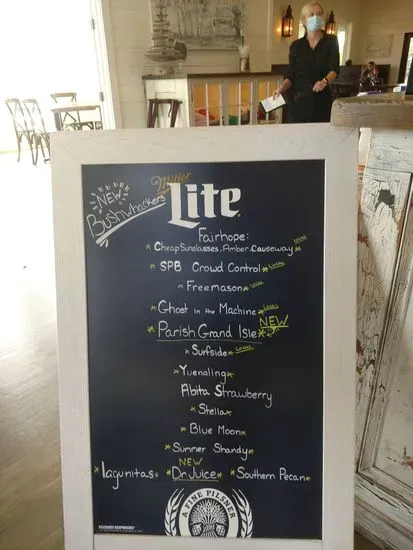 NEW
Bushwhackers
Miller
Lite
Fairhope:
Cheap Sunglasses, Amber, Causeway Local
SPB Crowd Control Local
Freemason Local
Ghost in the Machine Local
NEW
Parish Grand Isle
Surfside Local
Yuenaling
Abita Strawberry
Stella
Blue Moon
Summer Shandy
NEW
lagunitas Dr. Juice Southern Pecan
A FINE PILSNER